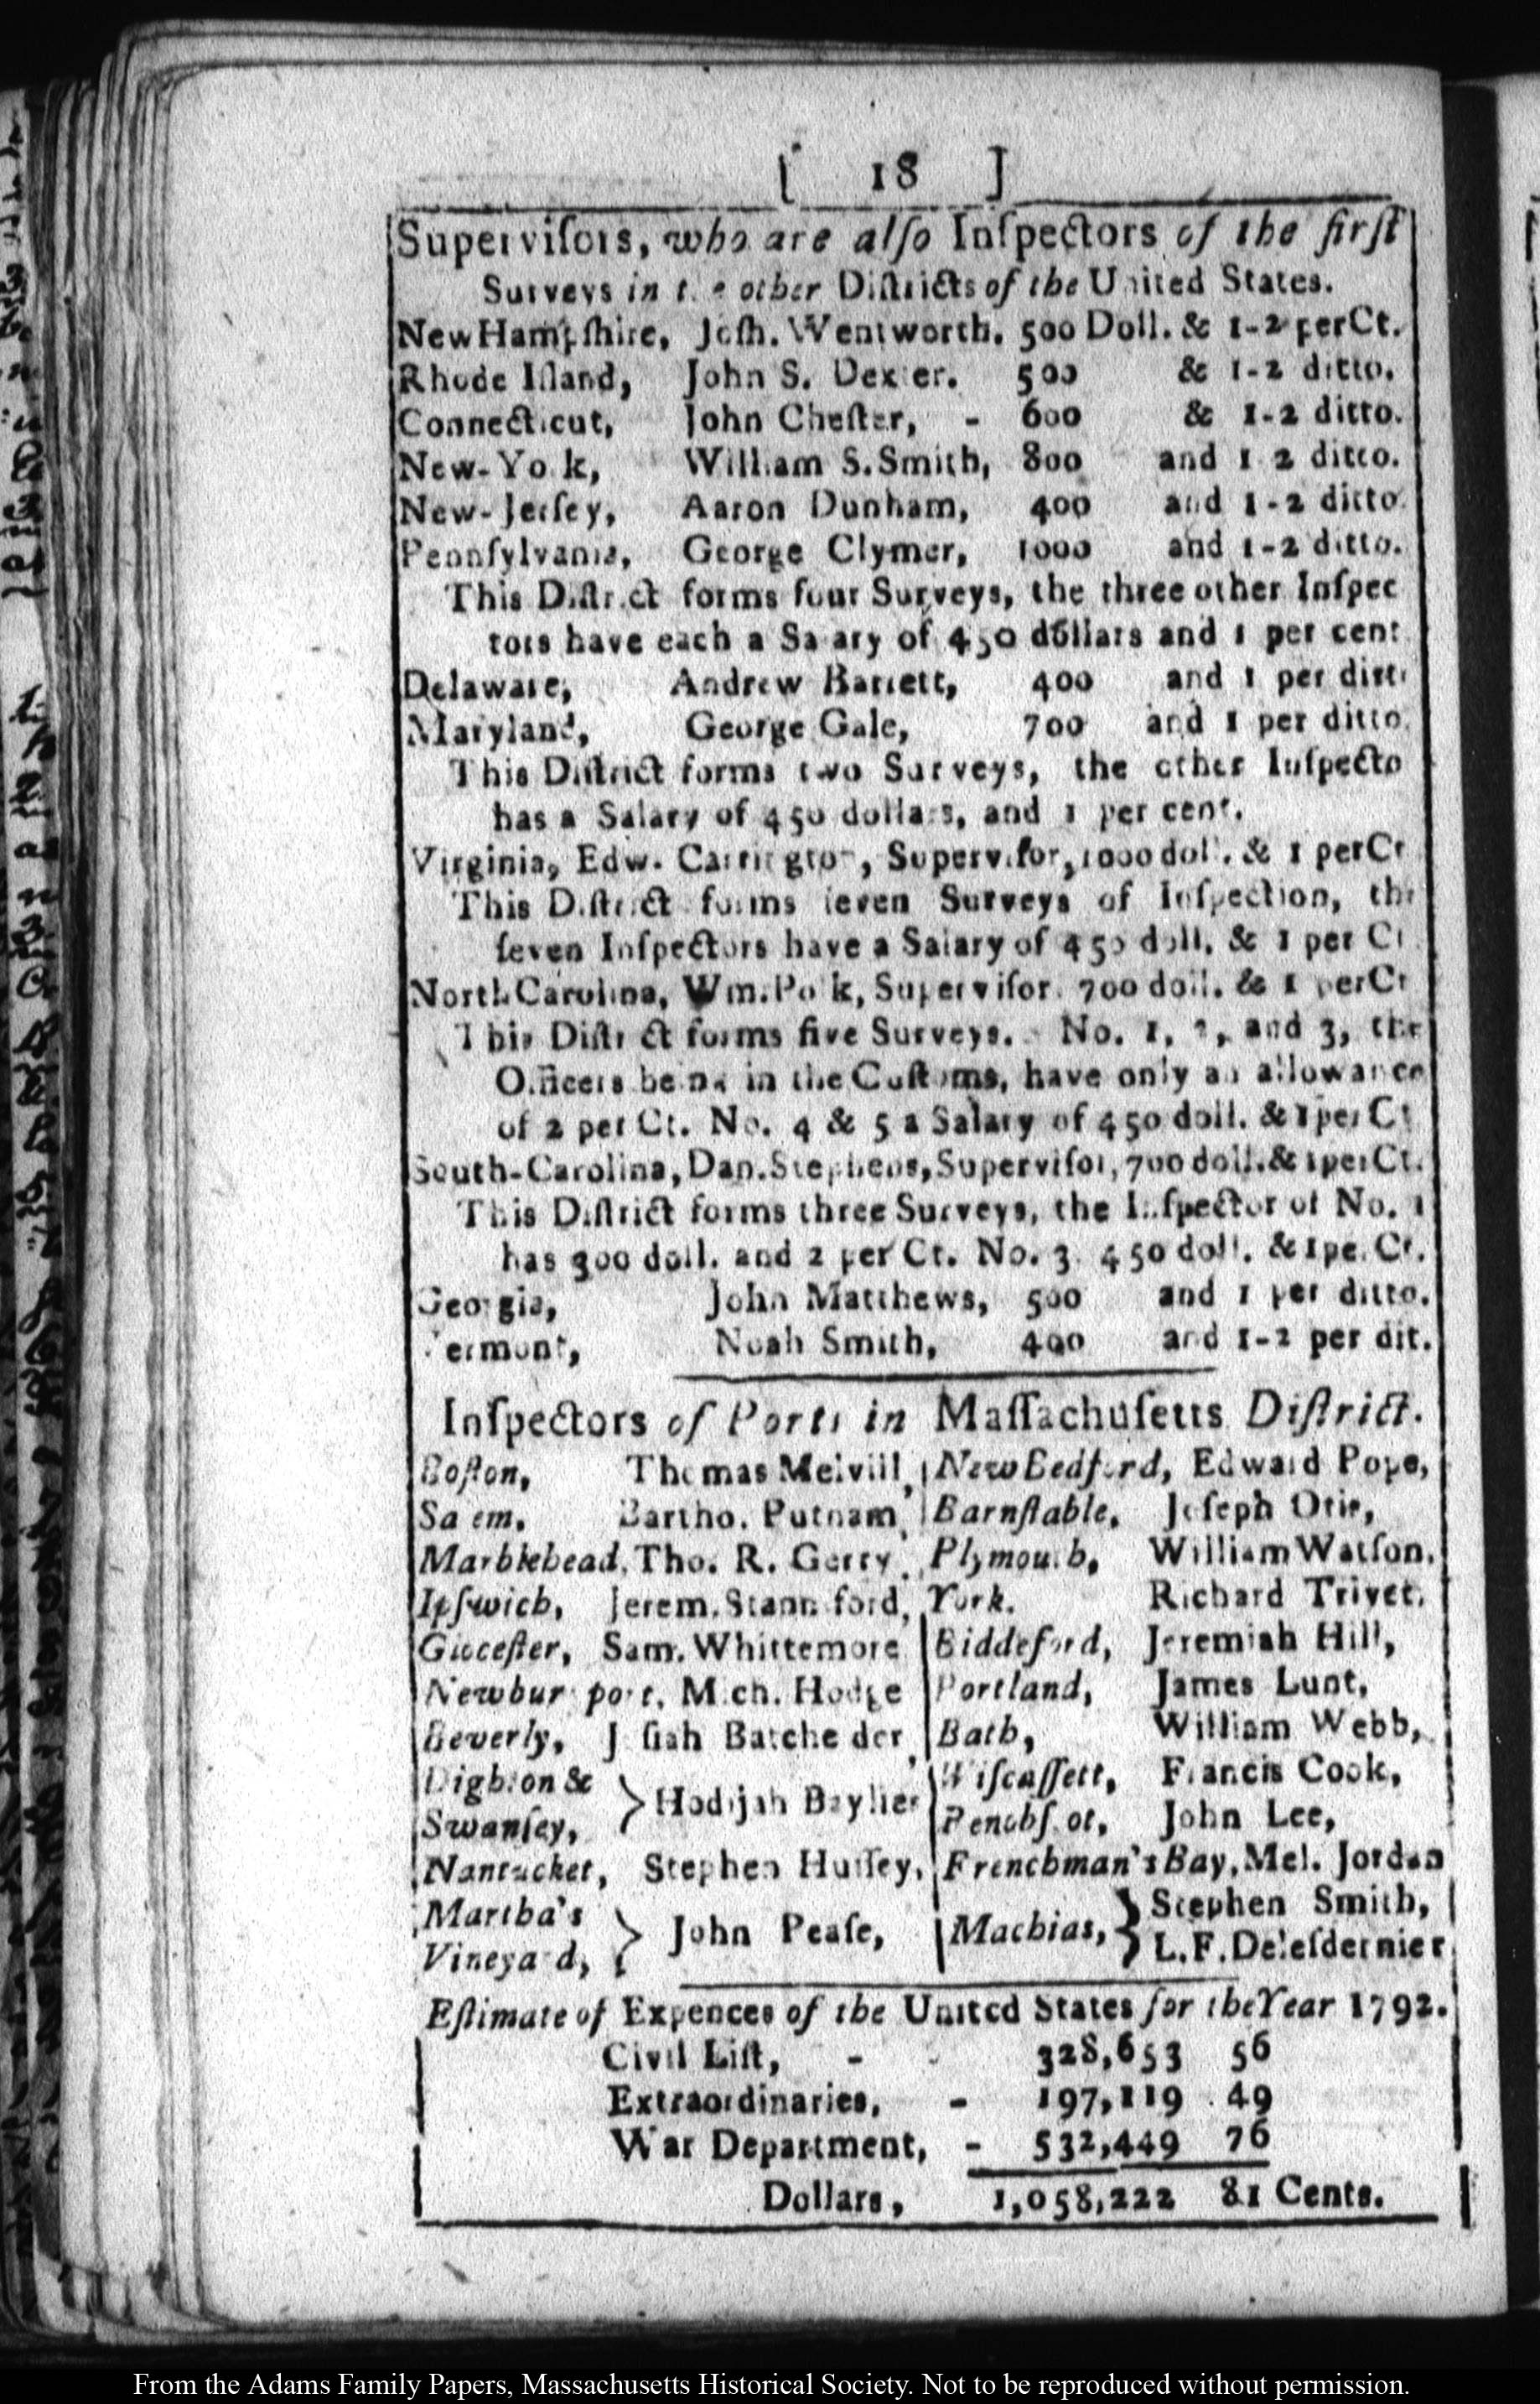 [ 18 ]
Superviſors, who are alſo Inſpectors of the firſt
Surveys in the other Diſtricts of the United States.
New Hampſhire, Joſh. Wentworth. 500 Doll. & 1-2 per Ct.
Rhode Iſland, John S. Dexter. 500 & 1-2 ditto.
Connecticut, John Cheſter, - 600 & 1-2 ditto.
New-York, William S. Smith, 800 and 1 2 ditto.
New-Jerſey, Aaron Dunham, 400 and 1-2 ditto.
Pennſylvania, George Clymer, 1000 and 1-2 ditto.
This Diſtrict forms four Surveys, the three other Inſpec
tors have each a Salary of 450 dollars and 1 per cent
Delaware, Andrew Barrett, 400 and 1 per ditto
Maryland, George Gale, 700 and 1 per ditto.
This Diſtrict forms two Surveys, the other Inſpecto
has a Salary of 450 dollars, and 1 per cent.
Virginia, Edw. Carrington, Superviſor, 1000 doll. & 1 per Ct
This Diſtrict forms ſeven Surveys of Inſpection, the
ſeven Inſpectors have a Salary of 450 doll. & 1 per Ct
North Carolina, Wm. Polk, Superviſor. 700 doll. & 1 per Ct
This Diſtrict forms five Surveys. No. 1, 2, and 3, the
Officers being in the Cuſtoms, have only an allowance
of 2 per Ct. No. 4 & 5 a Salary of 450 doll. & 1 per Ct
South-Carolina, Dan. Stephens, Superviſor, 700 doll. & 1 per Ct.
This Diſtrict forms three Surveys, the Inſpector of No. 1
has 300 doll. and 2 per Ct. No. 3. 450 doll. & 1 per Ct.
Georgia, John Matthews, 500 and 1 per ditto.
Vermont, Noah Smith, 400 and 1-2 per dit.
Inſpectors of Ports in Maſſachuſetts Diſtrict.
Boſton, Thomas Melvill, New Bedford, Edward Pope,
Salem, Bartho. Putnam, Barnſtable, Joſeph Otis,
Marblehead, Tho. R. Gerry, Plymouth, William Watſon,
Ipſwich, Jerem. Stanniford, York. Richard Trivet.
Gloceſter, Sam. Whittemore Biddeford, Jeremiah Hill,
Newburyport, Mich. Hodge Portland, James Lunt,
Beverly, Joſiah Batchelder, Bath, William Webb,
Dighton & Swanſey, Hodijah Baylies Wiſcaſſett, Francis Cook,
Penobſcot, John Lee,
Nantucket, Stephen Huſſey, Frenchman's Bay, Mel. Jordan
Martha's Vineyard, John Peaſe, Machias, Stephen Smith,
L. F. Deleſdernier
Eſtimate of Expences of the United States for the Year 1792.
Civil Liſt, - - 328,653 56
Extraordinaries, - 197,119 49
War Department, - 532,449 76
Dollars, 1,058,222 81 Cents.
From the Adams Family Papers, Massachusetts Historical Society. Not to be reproduced without permission.